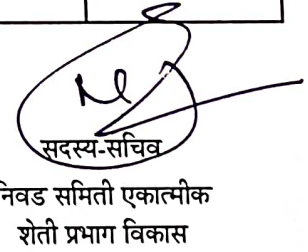 सदस्य-सचिव
निवड समिती एकात्मीक
शेती प्रभाग विकास